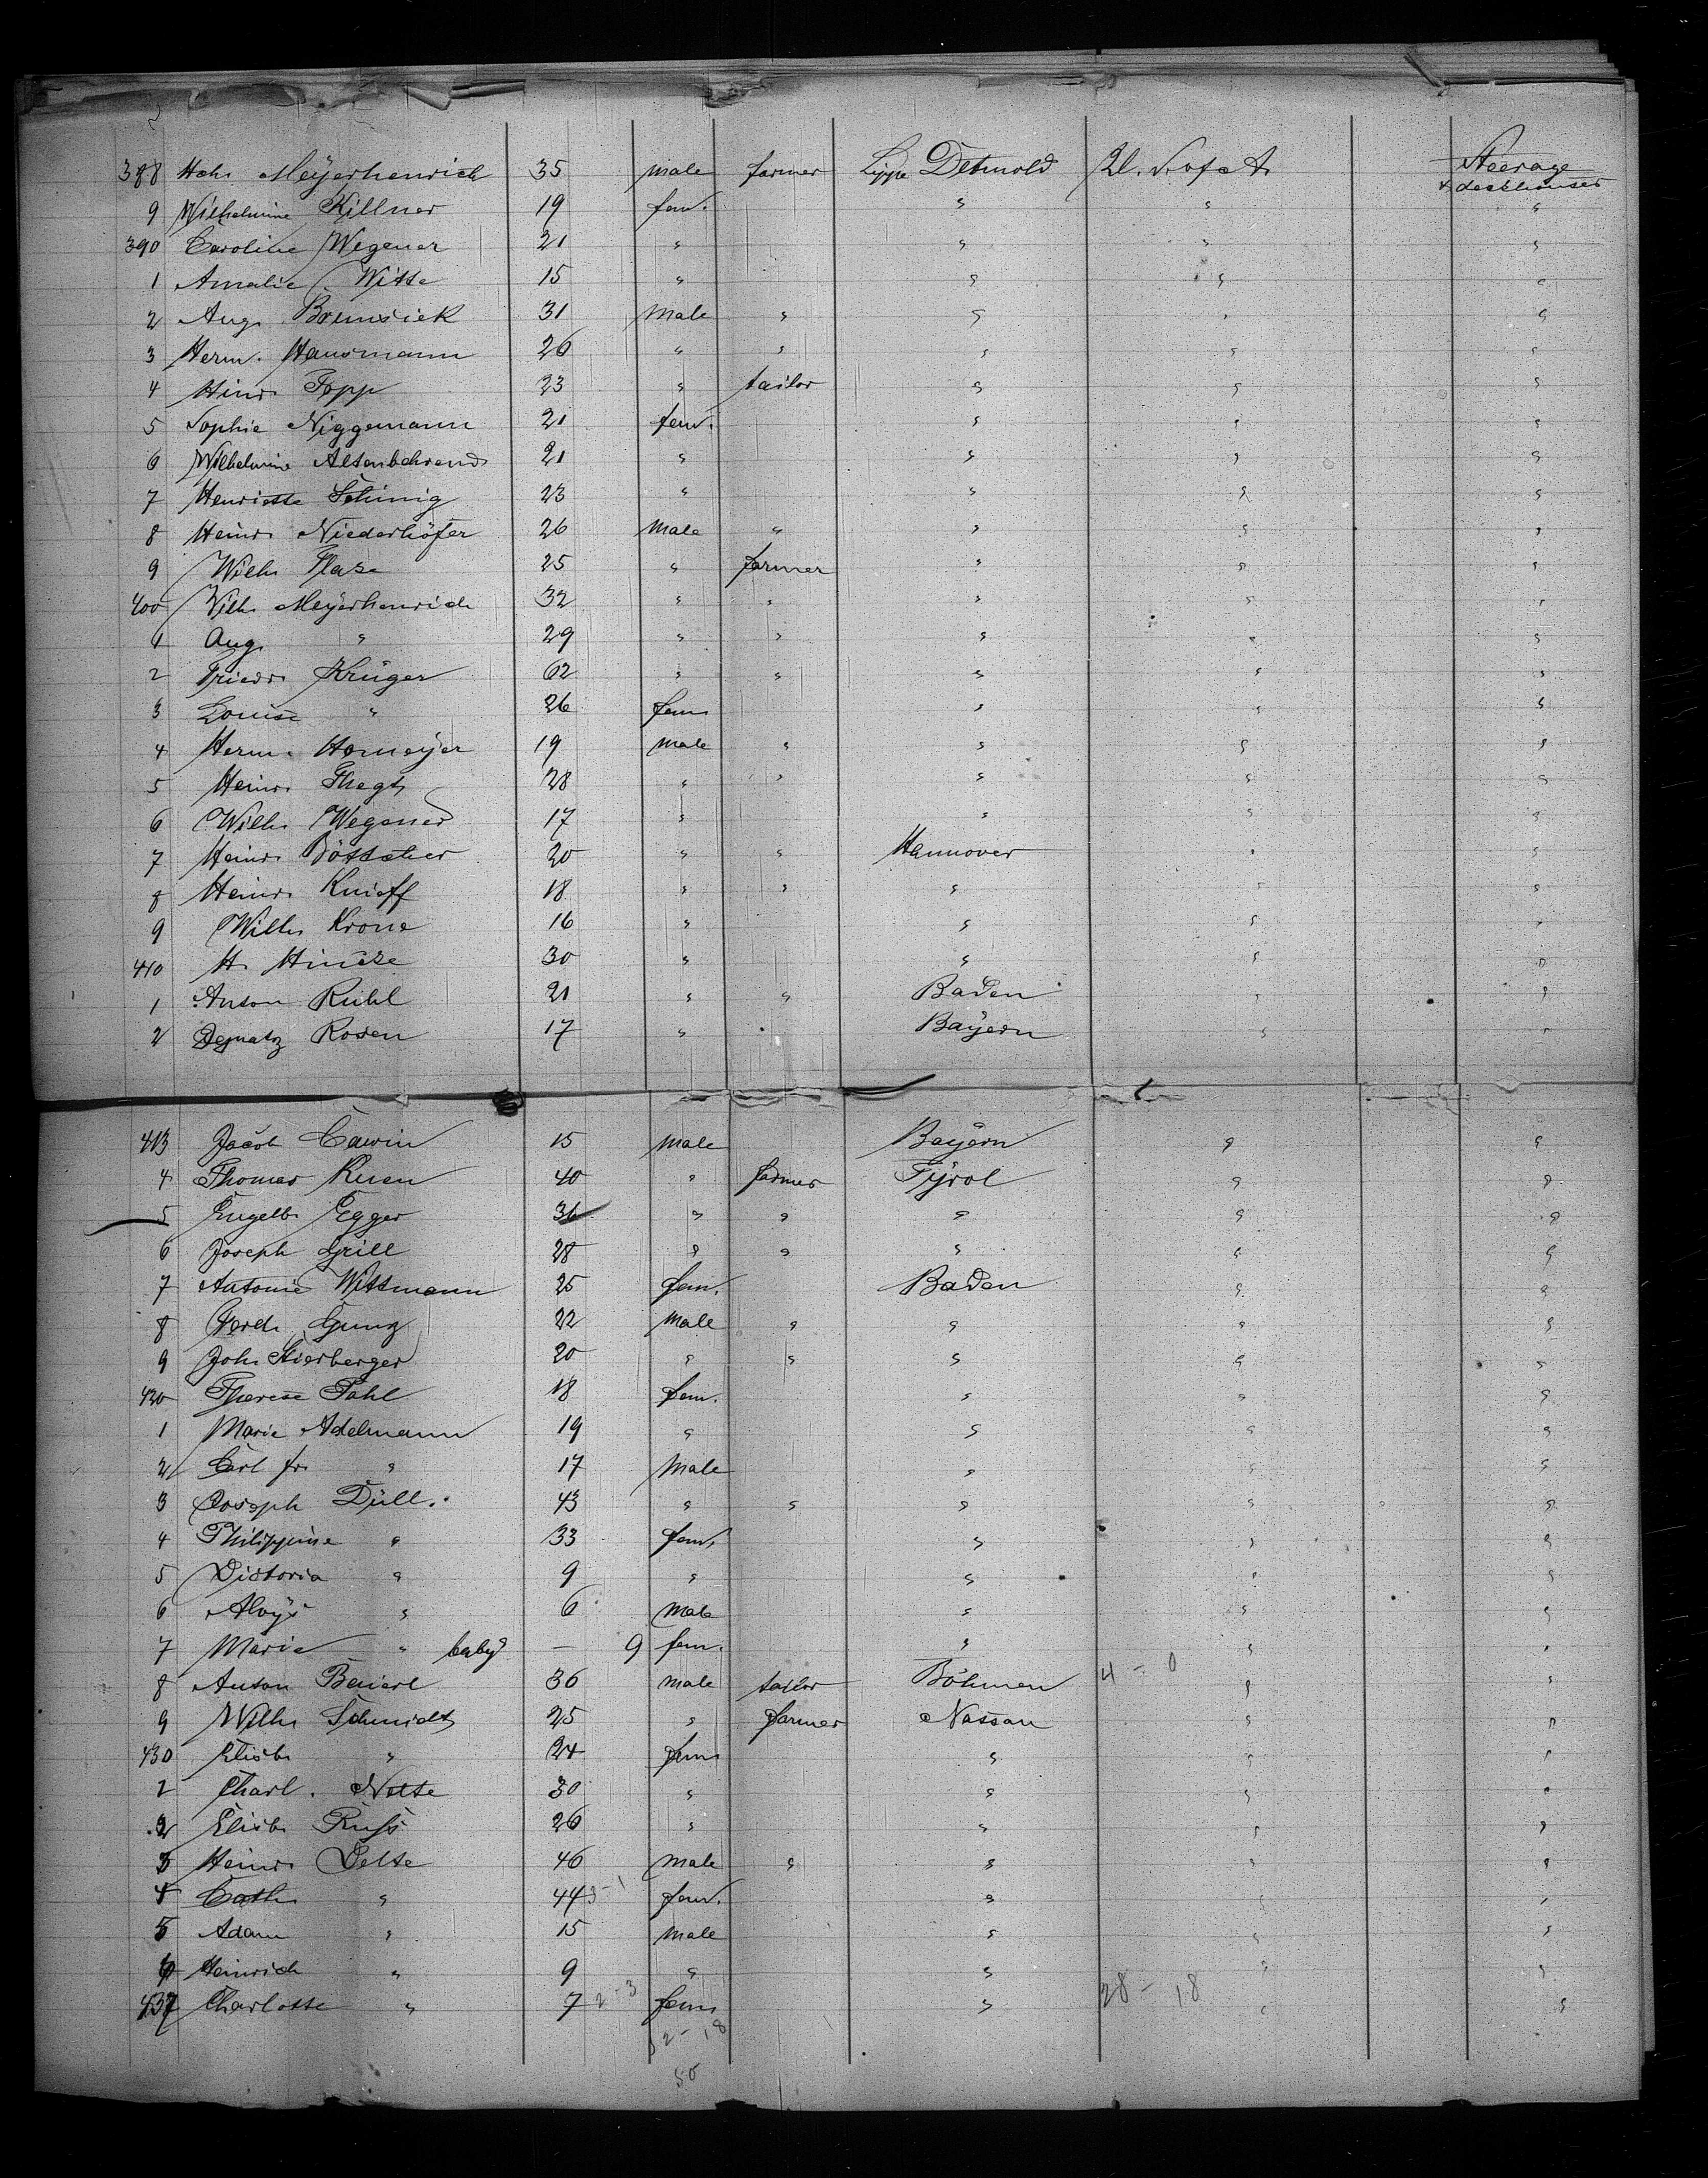 388 Hch. Meÿerhenrich 35 male farmer Lippe Detmold U. S. of A. Steerage
9 Wilhelmine Killner 19 fem. " " & deckhouses "
390 Caroline Wegener 21 " " " "
1 Amalie Witte 15 " " " "
2 Aug. Brunsiek 31 Male " " " "
3 Herm. Hausmann 26 " " " " "
4 Hinr. Topp 23 " tailor " " "
5 Sophie Niggemann 21 fem. " " "
6 Wilhelmine Altenbehrend 21 " " " "
7 Henriette 23 " " " "
8 Heinr. Niederhöfer 26 Male " " " "
9 Wilh. Flase 25 " farmer " " "
400 Wilh. Meÿerhenrich 32 " " " " "
1 Aug. " 29 " " " " "
2 Friedr. Krüger 62 " " " " "
3 Louise " 26 fem " " "
4 Herm. Homeÿer 19 male " " " "
5 Heinr. 28 " " " " "
6 Wilh. Wegener 17 " " " "
7 Heinr. Böttcher 20 " " Hannover " "
8 Heinr. Knieff 18 " " " " "
9 Wilh. Krone 16 " " " "
410 H. Hincke 30 " " " "
1 Anton Rühl 21 " " Baden " "
2 Ignatz Rosen 17 " " Baÿern " "
413 Jacob 15 male Baÿern " "
4 Thomas Kuen 40 " farmer Tÿrol " "
5 Engelb. Egger 36 " " " " "
6 Joseph Grill 28 " " " " "
7 Antonie Wittmann 25 fem. Baden " "
8 Ferd. Gunz 22 Male " " " "
9 Joh. Stierberger 20 " " " " "
420 Therese Pahl 18 fem. " " "
1 Marie Adelmann 19 " " " "
2 Carl fr. " 17 Male " " "
3 Joseph Düll. 43 " " " " "
4 Philippine " 33 fem. " " "
5 Victoria " 9 " " " "
6 Aloÿs " 6 Male " " "
7 Marie " baby — 9 fem. " " "
8 Anton Beierl 36 male tailor Böhmen 4 - 0 " "
9 Wilh. Schmidt 25 " farmer Nassau " "
430 Elisb. " 24 fem " " "
1 Charl. Nolte 30 " " " "
2 Elisb. Russ 26 " " " "
3 Heinr. Delte 46 Male " " " "
4 Cath. " 44 3-1 fem. " " "
5 Adam " 15 male " " "
6 Heinrich " 9 " " " "
437 Charlotte " 7 2-3 fem " 28 - 18 " "
32 - 18
50